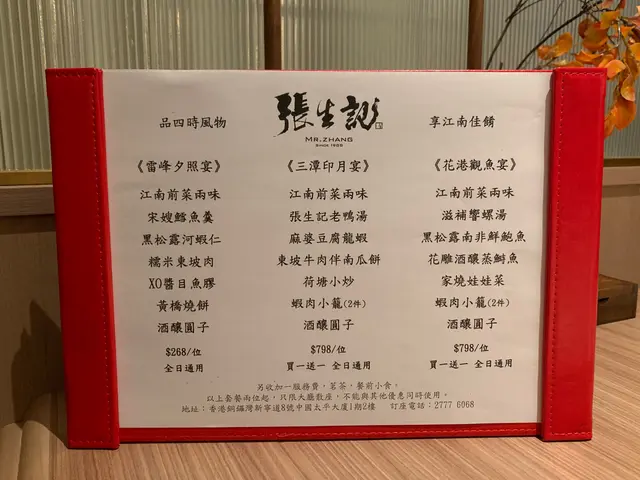 品四時風物
張生記
MR.ZHANG
SINCE 1988
享江南佳餚
《雷峰夕照宴》
江南前菜兩味
宋嫂鱖魚羹
黑松露河蝦仁
糯米東坡肉
XO醬目魚膠
黃橋燒餅
酒釀圓子
$268/位
全日通用
《三潭印月宴》
江南前菜兩味
張生記老鴨湯
麻婆豆腐龍蝦
東坡牛肉伴南瓜餅
荷塘小炒
蝦肉小籠(2件)
酒釀圓子
$798/位
買一送一 全日通用
《花港觀魚宴》
江南前菜兩味
滋補響螺湯
黑松露南非鮮鮑魚
花雕酒釀蒸鰣魚
家燒娃娃菜
蝦肉小籠(2件)
酒釀圓子
$798/位
買一送一 全日通用
另收加一服務費，茗茶，餐前小食。
以上套餐兩位起，只限大廳散座，不能與其他優惠同時使用。
地址：香港銅鑼灣新寧道8號中國太平大廈1期2樓 訂座電話：2777 6968